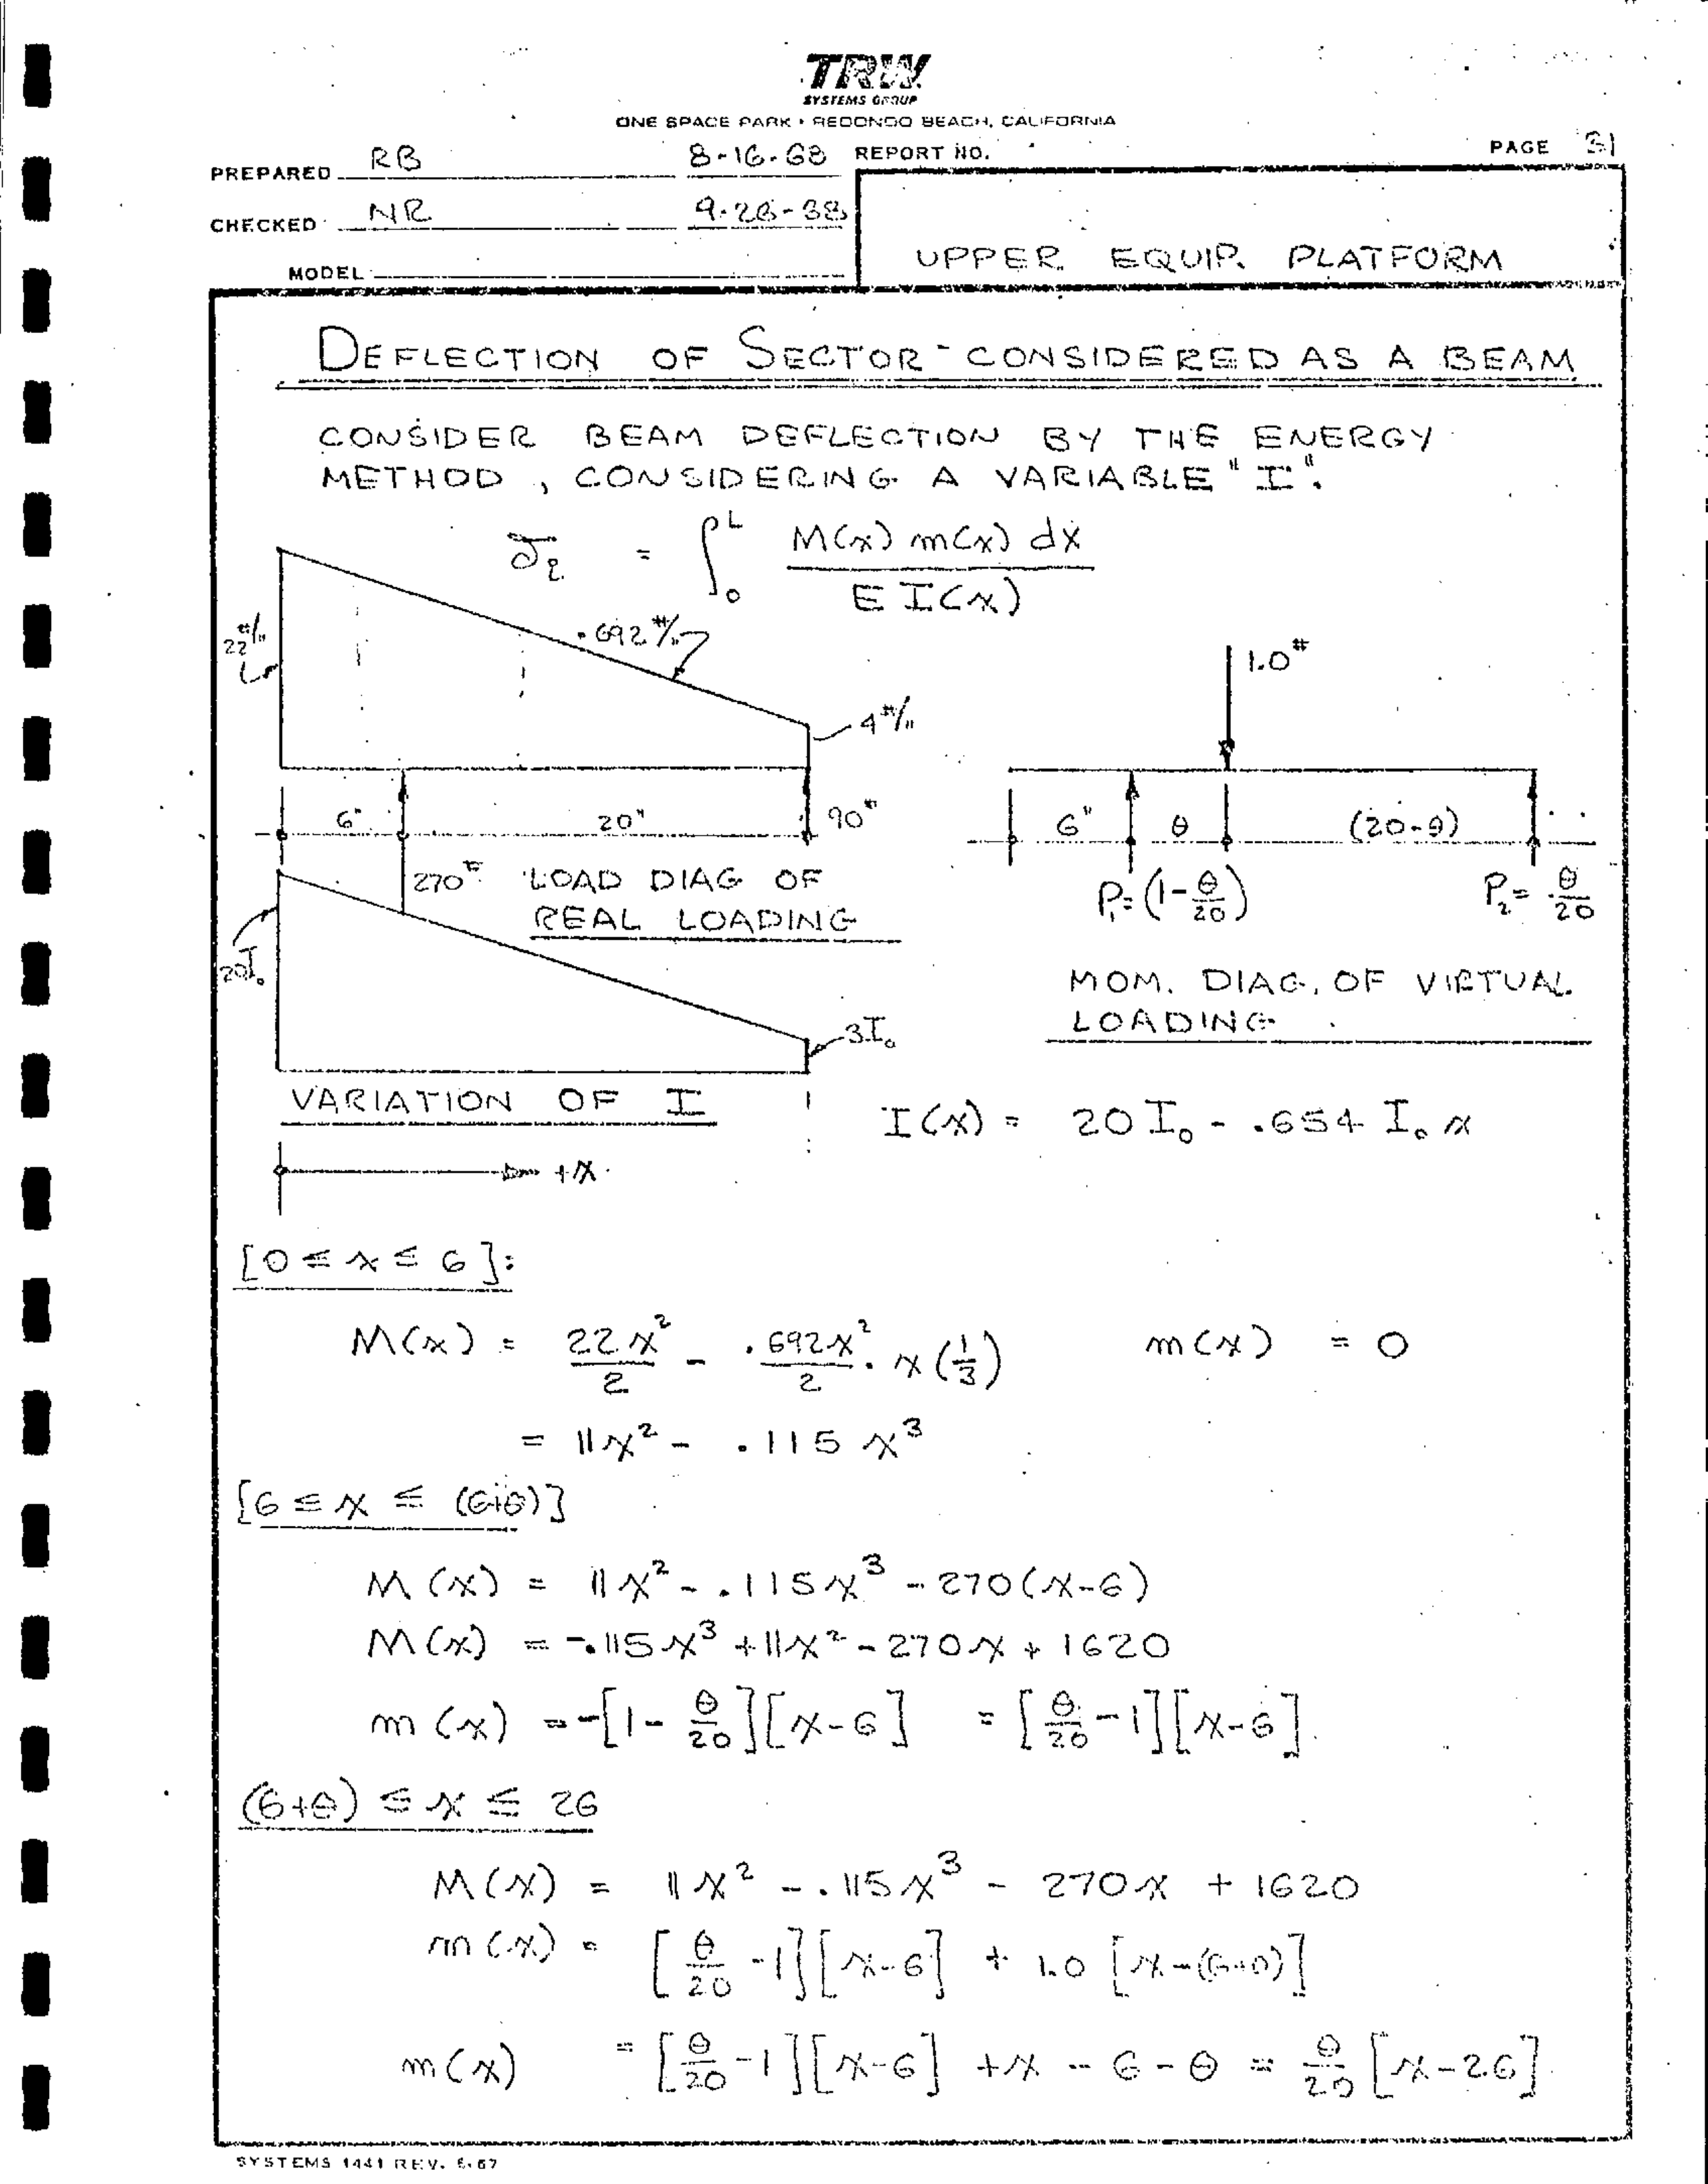 TRW
SYSTEMS GROUP
ONE SPACE PARK • REDONDO BEACH, CALIFORNIA
PREPARED RB 8-16-68 REPORT NO. PAGE 31
CHECKED NR
MODEL
UPPER EQUIP. PLATFORM
DEFLECTION OF SECTOR - CONSIDERED AS A BEAM
CONSIDER BEAM DEFLECTION BY THE ENERGY
METHOD, CONSIDERING A VARIABLE "I".
= ∫₀ᴸ M(x) m(x) dx / E I(x)
22 #/"
.692 #/"
4 #/"
1.0#
6" 20" 90#
6" θ (20-θ)
270# LOAD DIAG OF
REAL LOADING
P₁ = (1 - θ/20) P₂ = θ/20
20I₀
MOM. DIAG. OF VIRTUAL
LOADING
3I₀
VARIATION OF I
I(x) = 20 I₀ - .654 I₀ x
+x
[0 ≤ x ≤ 6]:
M(x) = 22x²/2 - .692x²/2 · x(1/3) m(x) = 0
= 11x² - .115 x³
[6 ≤ x ≤ (6+θ)]
M(x) = 11x² - .115x³ - 270(x-6)
M(x) = -.115x³ + 11x² - 270x + 1620
m(x) = -[1 - θ/20][x-6] = [θ/20 - 1][x-6]
(6+θ) ≤ x ≤ 26
M(x) = 11x² - .115x³ - 270x + 1620
m(x) = [θ/20 - 1][x-6] + 1.0 [x-(6+θ)]
m(x) = [θ/20 - 1][x-6] + x - 6 - θ = θ/20 [x-26]
SYSTEMS 1441 REV. 6-67